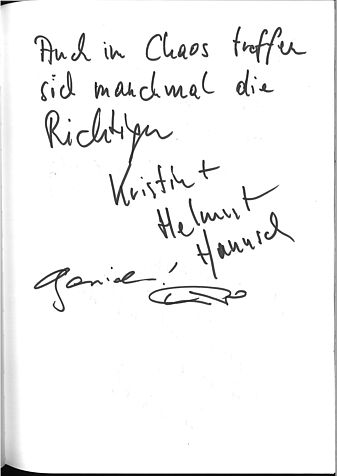 Auch im Chaos treffen
sich manchmal die
Richtigen
Kristin +
Helmut
Hannich
Genial!